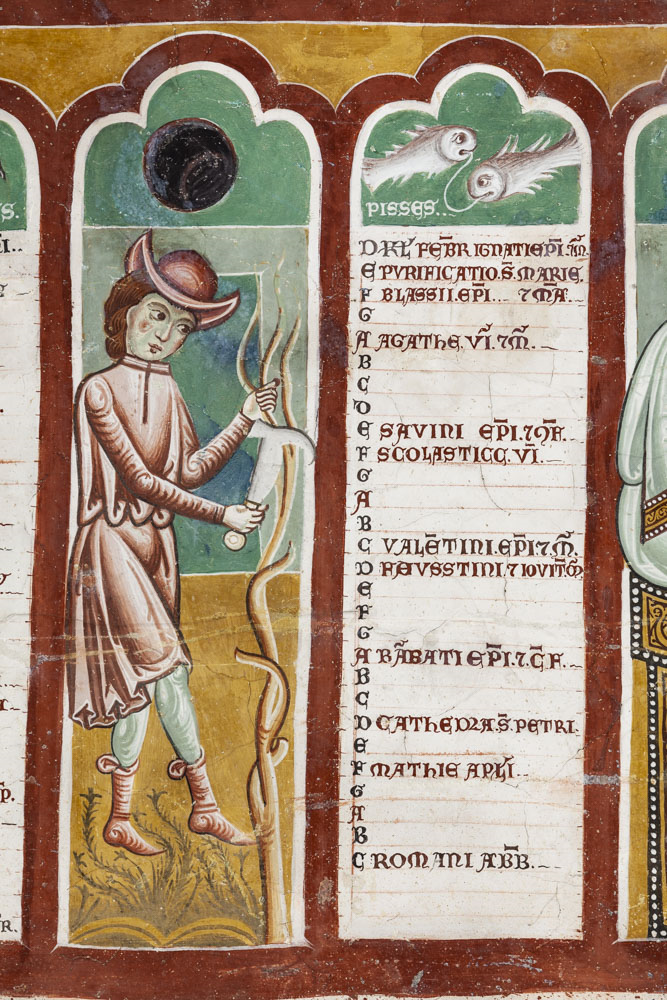 PISSES...
D KL FEBR IGNATI EPI. 7M.
E PVRIFICATIO. S. MARIE.
F BLASII. EPI... 7 MA.
G
A AGATHE. VI. 7 M.
B
C
D
E SAVINI EPI. 7 9F.
F SCOLASTICE. VI.
G
A
B
C VALETINI. EPI 7 M.
D FAVSTINI. 7 IOVITE M.
E
F
G
A BABATI EPI. 7 C F.
B
C
D CATHEDRA. S. PETRI.
E
F MATHIE APLI...
G
A
B
C ROMANI ABB...